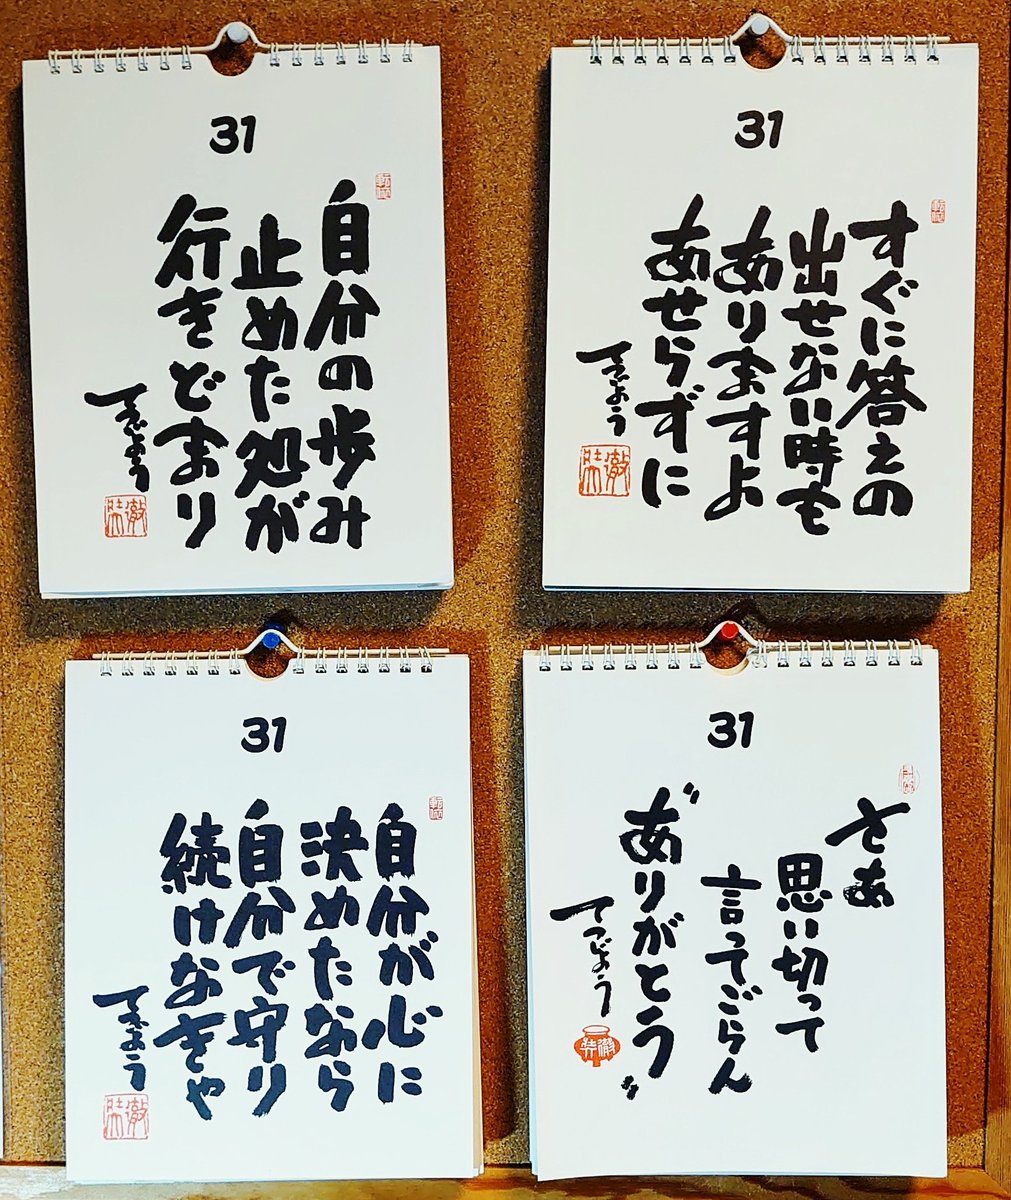 31
自分の歩み
止めた処が
行きどまり
てつじょう
31
すぐに答えの
出せない時も
ありますよ
あせらずに
てつじょう
31
自分が心に
決めたなら
自分で守り
続けなきゃ
てつじょう
31
さあ
思い切って
言ってごらん
"ありがとう"
てつじょう